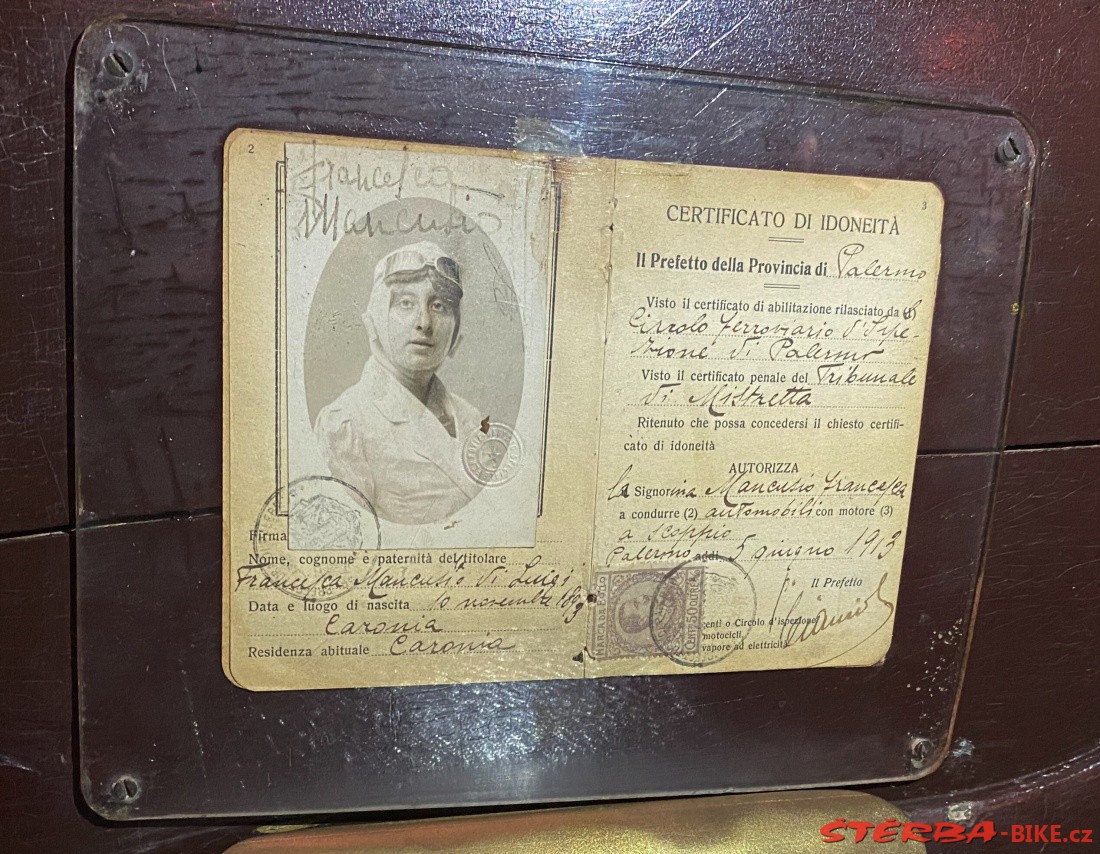 2
Francesca
Mancusio
Firma
Nome, cognome e paternità del titolare
Francesca Mancusio di Luigi
Data e luogo di nascita 10 novembre 1893
Caronia
Residenza abituale Caronia
3
CERTIFICATO DI IDONEITÀ
Il Prefetto della Provincia di Palermo
Visto il certificato di abilitazione rilasciato da
Circolo ferroviario d'Ispe-
zione di Palermo
Visto il certificato penale del Tribunale
di Mistretta
Ritenuto che possa concedersi il chiesto certifi-
cato di idoneità
AUTORIZZA
la Signorina Mancusio Francesca
a condurre (2) automobili con motore (3)
a scoppio
Palermo addì, 5 giugno 1913
Il Prefetto
MARCA DA BOLLO
CENT. 50
enti o Circolo d'ispezione
motocicli
vapore ad elettricità
STERBA-BIKE.cz